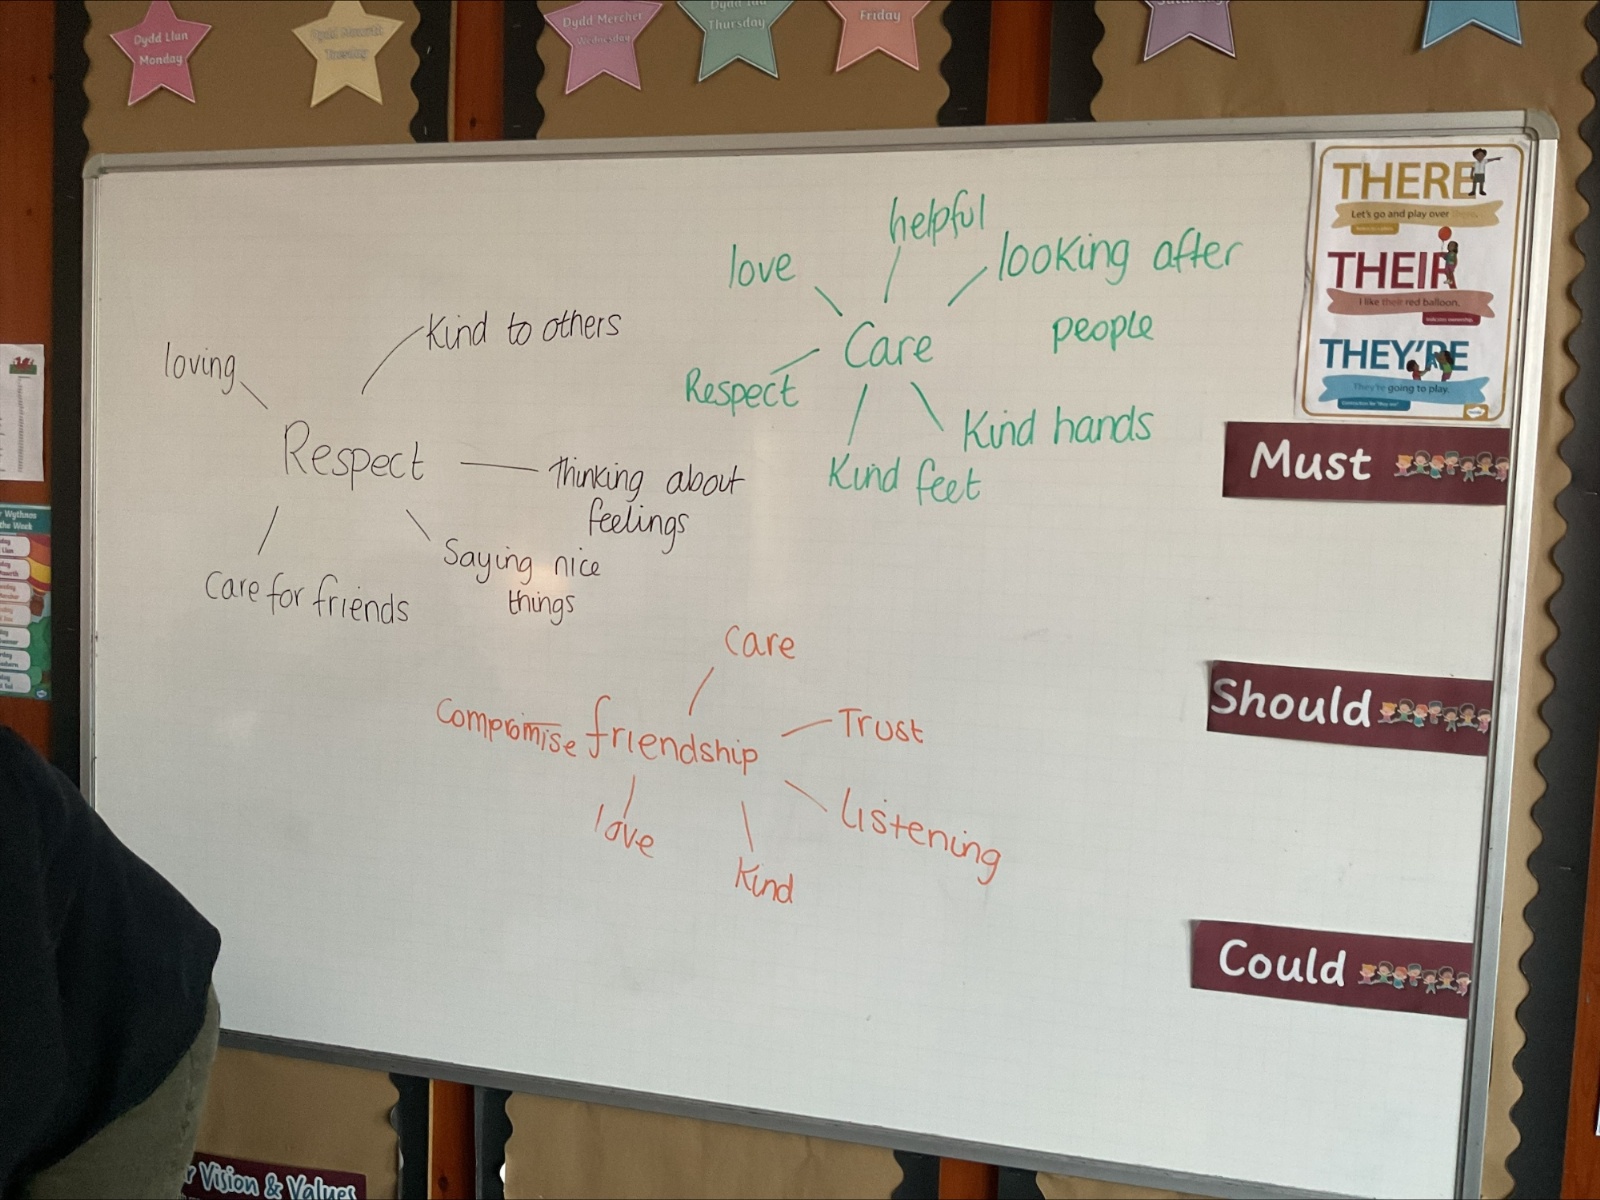 Dydd Llun
Monday
Tuesday
Dydd Mercher
Wednesday
Dydd Iau
Thursday
Friday
Saturday
loving
Kind to others
Respect
thinking about
feelings
Saying nice
things
Care for friends
helpful
love
looking after
people
Care
Respect
Kind hands
Kind feet
care
Compromise
friendship
Trust
Listening
love
Kind
THERE
Let's go and play over there.
THEIR
I like their red balloon.
Indicates ownership.
THEY'RE
They're going to play.
Must
Should
Could
Vision & Values